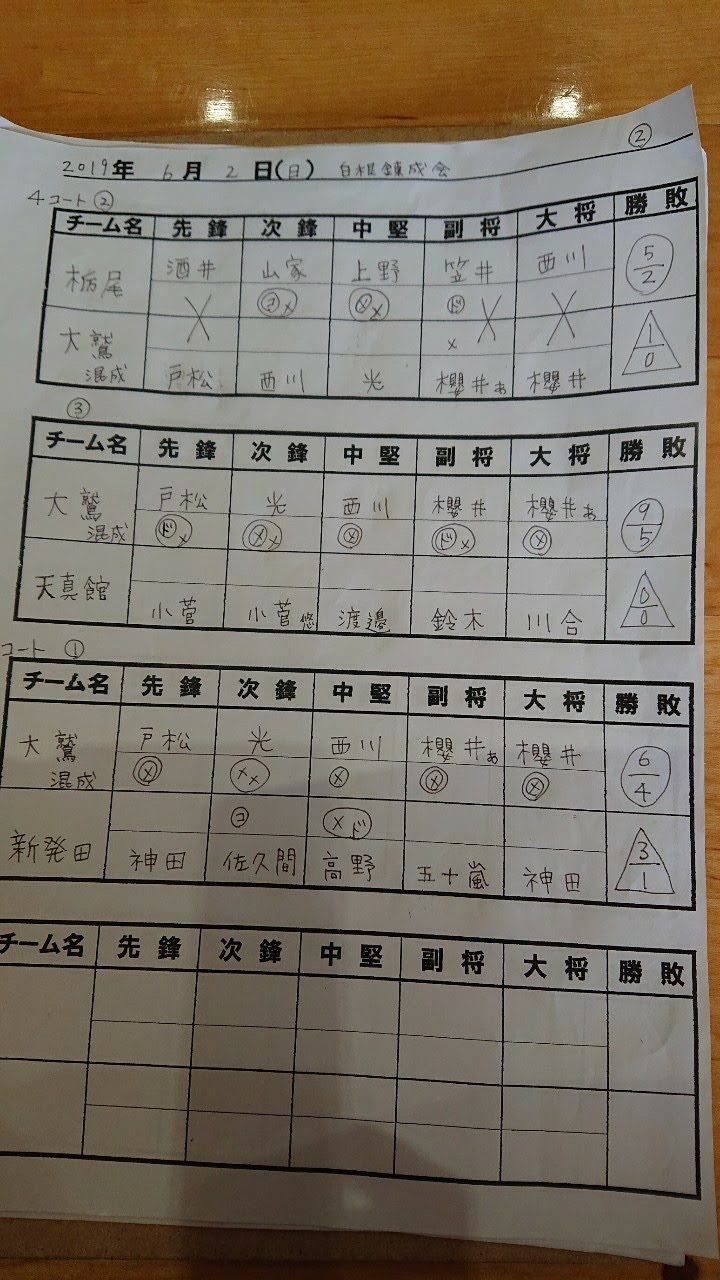 ②
2019年 6月 2日(日) 白根錬成会
4コート ②
チーム名 先鋒 次鋒 中堅 副将 大将 勝敗
栃尾 酒井 山家 上野 笠井 西川 5/2
ヨメ メメ ド
大鷲混成 メ 1/0
戸松 西川 光 櫻井あ 櫻井
③
チーム名 先鋒 次鋒 中堅 副将 大将 勝敗
大鷲混成 戸松 光 西川 櫻井 櫻井あ 9/5
ドメ メメ メ ドメ メ
天真館 0/0
小菅 小菅悠 渡邉 鈴木 川合
コート ①
チーム名 先鋒 次鋒 中堅 副将 大将 勝敗
大鷲混成 戸松 光 西川 櫻井あ 櫻井 6/4
メ メメ メ メ メ
新発田 ヨ メド 3/1
神田 佐久間 高野 五十嵐 神田
チーム名 先鋒 次鋒 中堅 副将 大将 勝敗